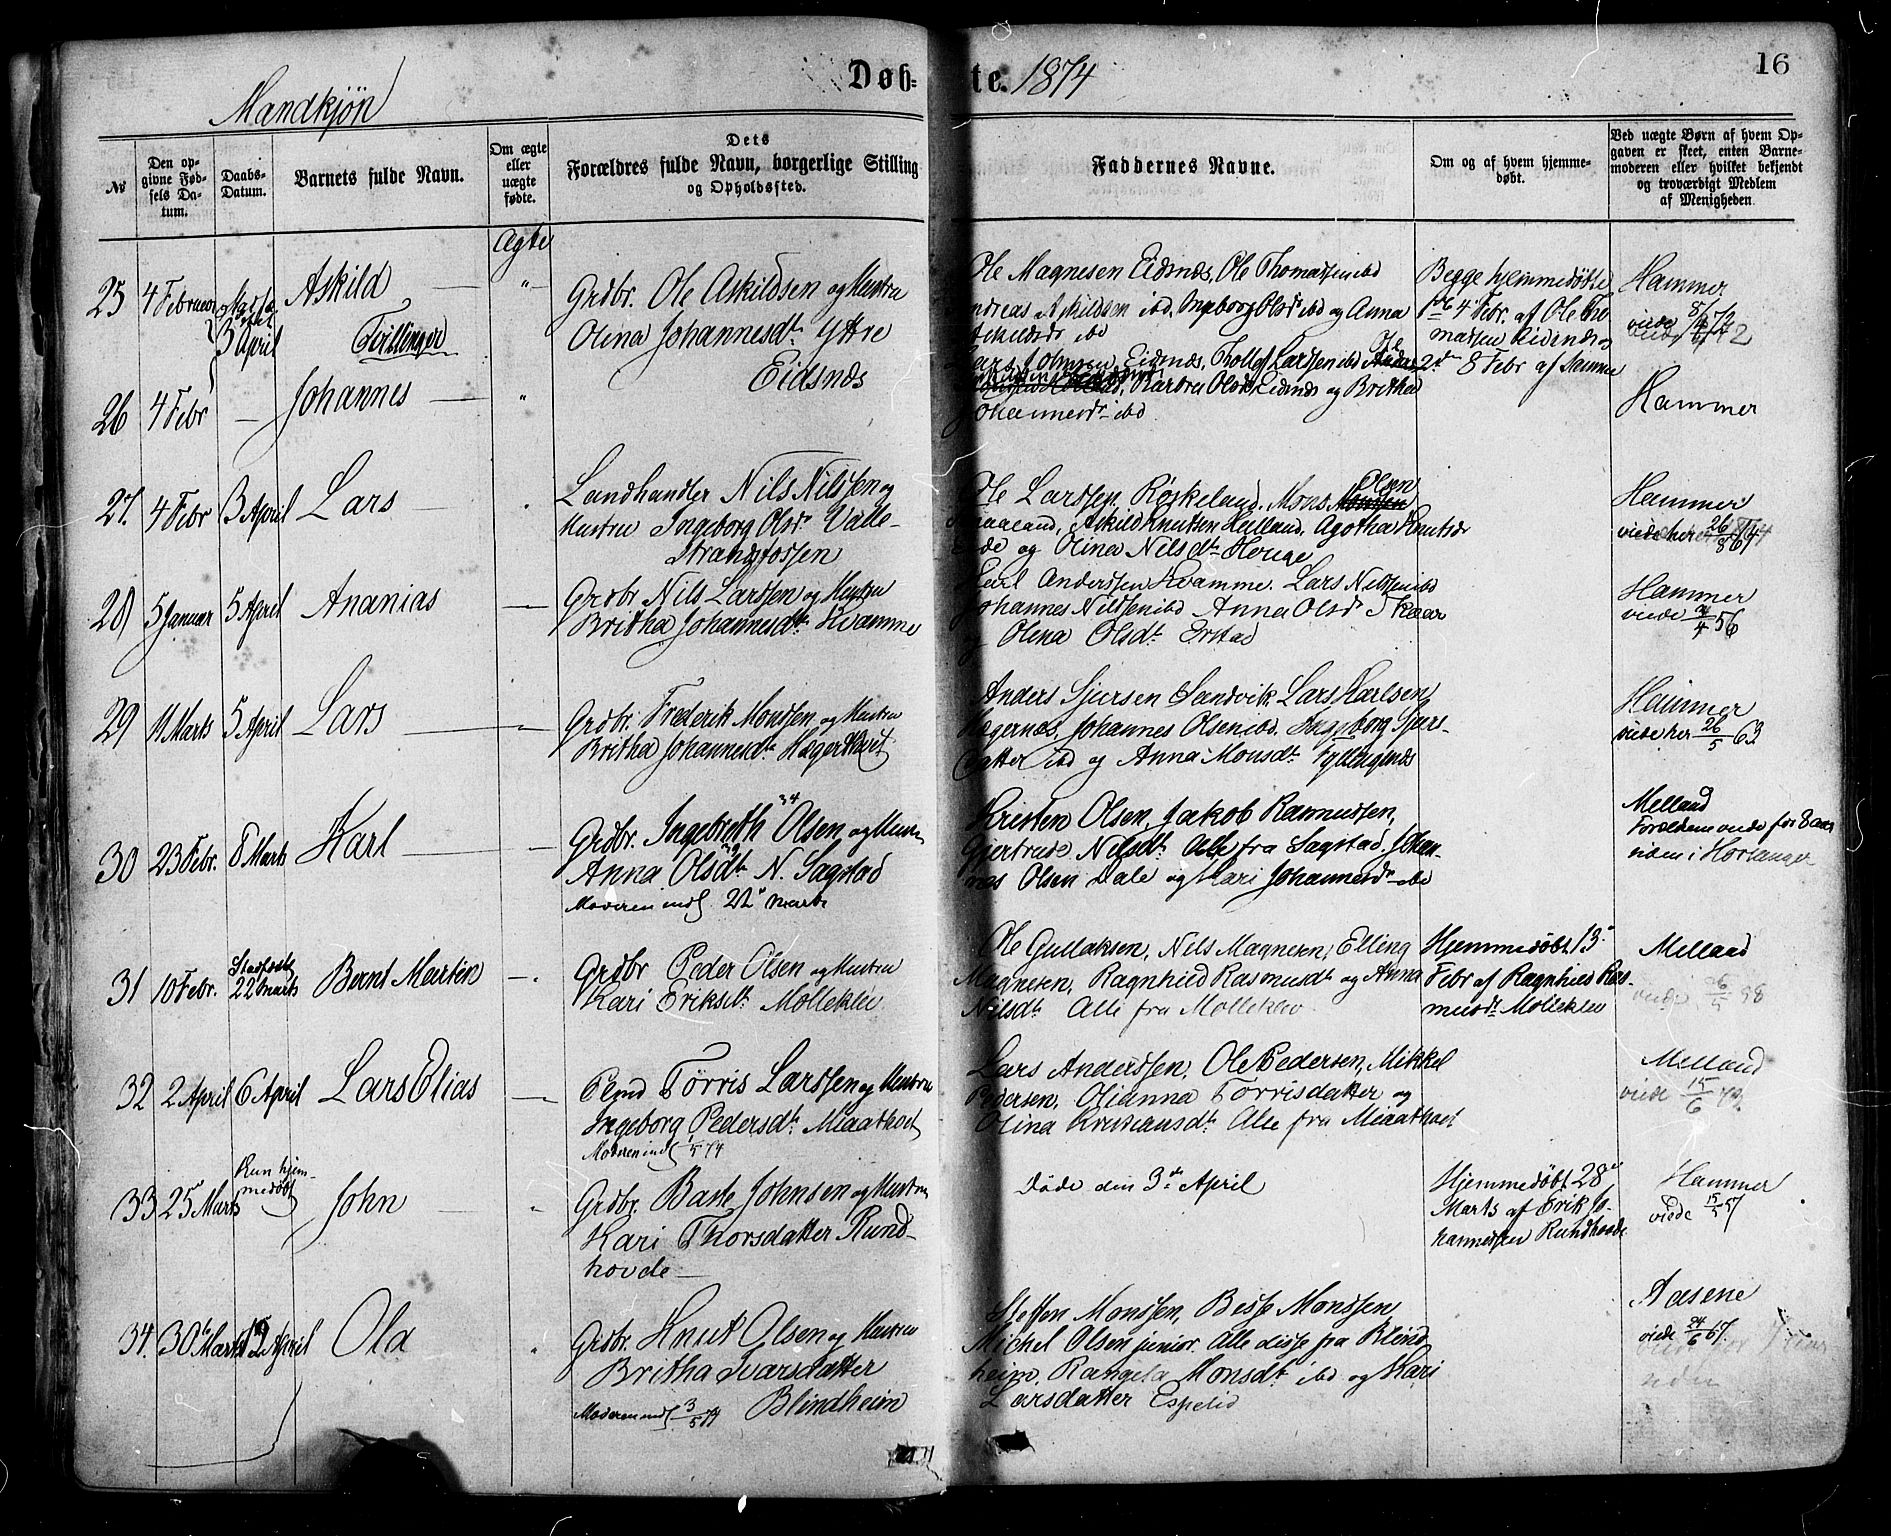 Døbte. 1874
16
Mandkjøn
№
Den opgivne Fødsels Datum.
Daabs-Datum.
Barnets fulde Navn.
Om ægte eller uægte fødte.
Dets Forældres fulde Navn, borgerlige Stilling og Opholdssted.
Faddernes Navne.
Om og af hvem hjemmedøbt.
Ved uægte Børn af hvem Opgaven er skeet, enten Barnemoderen eller hvilket bekjendt og troværdigt Medlem af Menigheden
Ægte
25 4 Februar
3 April
Askild
Tvillinger
Grdbr. Ole Askildsen og Hustru
Olina Johannesdt. Yttre
Eidsnæs
Ole Magnesen Eidsnæs, Ole Thomassen ibd
Andreas Askildsen ibd, Ingeborg Olsdr ibd og Anna
Askildsdr ibd
Begge hjemmedøbte
4 Febr. af Ole Tho
massen Eidsnæs
2den 8 Febr af Samme
Hammer
viede
26 4 Febr — Johannes
Lars Johnsen Eidsnæs, Thollef Larssen ibd
Eidsnæs og Britha
Johannesdr ibd
Hammer
27. 4 Febr 3 April Lars
Landhandler Nils Nilssen og
Hustru Ingeborg Olsdr Valle-
strandsfossen
Ole Larssen, Røskeland, Mons Olsen
Askild Knutsen Helland, Agotha Knutsdr
og Olina Nilsdt. Houge
Hammer
viede her 26/8 64
28 5 Januar 5 April Ananias
Grdbr Nils Larssen og Hustru
Britha Johannesdt. Kvamme
Karl Anderssen Kvamme. Lars Nilssen ibd
Johannes Nilssen ibd Anna Olsdr Skaar
og Olena Olsdt. Erstad
Hammer
viede 24/4 56
29 11 Marts 5 April Lars
Grdbr. Frederik Monssen og Hustru
Britha Johannesdt.
Anders Sjursen Sandvik, Lars Karlsen
Hægernæs, Johannes Olsen ibd. Ingeborg Sjurs-
datter ibd og Anna Monsdt. Fyllingsnæs
Hammer
viede her 26/5 63
30 23 Febr. 8 Marts Karl
Grdbr. Ingebreth 34 Olsen og Hustru
Anna Olsdt. N. Sagstad
Moderen indl 22 Marts
Kristen Olsen, Jakob Rasmussen,
Gjertrude Nilsdt. Alle fra Sagstad, Johan-
nes Olsen Dale og Kari Johannesdr ibd
Melland
Forældrene viede for 8 aar
siden i Hortanger
31 10 Febr. Stadfæst
22 Marts Bernt Martin
Grdbr Peder Olsen og Hustru
Kari Eriksdt. Mølleklev
Ole Gullaksen, Nils Magnesen, Elling
Magnesen, Ragnhild Rasmusdt. og Anna
Nilsdt. Alle fra Mølleklev
Hjemmedøbt 13.
Febr af Ragnhild Ras-
musdt. Mølleklev
Melland
32 2 April 6 April Lars Elias
Torris Larssen og Hustru
Ingeborg Pedersdt. Miaathvet
Moderen indl
Lars Anderssen, Ole Pedersen, Mikkel
Pedersen, Olianna Torrisdatter og
Olina Kristiansdt. Alle fra Miaathvet
Melland
viede 15/6 73
33 25 Marts Kun hjem-
medøbt John
Grdbr. Baste Johnsen og Hustru
Kari Thorsdatter Rund-
hovde
Døde den 3die April
Hjemmedøbt 28
Marts af Erik Jo-
hannessen Rundhovde
Hammer
viede 57
34. 30 Marts 12 April Ola
Grdbr. Knut Olsen og Hustru
Britha Ivarsdatter
Moderen indl 3/5 74 Blindheim
Steffen Monssen, Besse Monssen
Michel Olsen junior. Alle disse fra Blind-
heim, Rangela Monsdt ibd og Kari
Larsdatter Espelid
Aasene
viede 24/6 67.